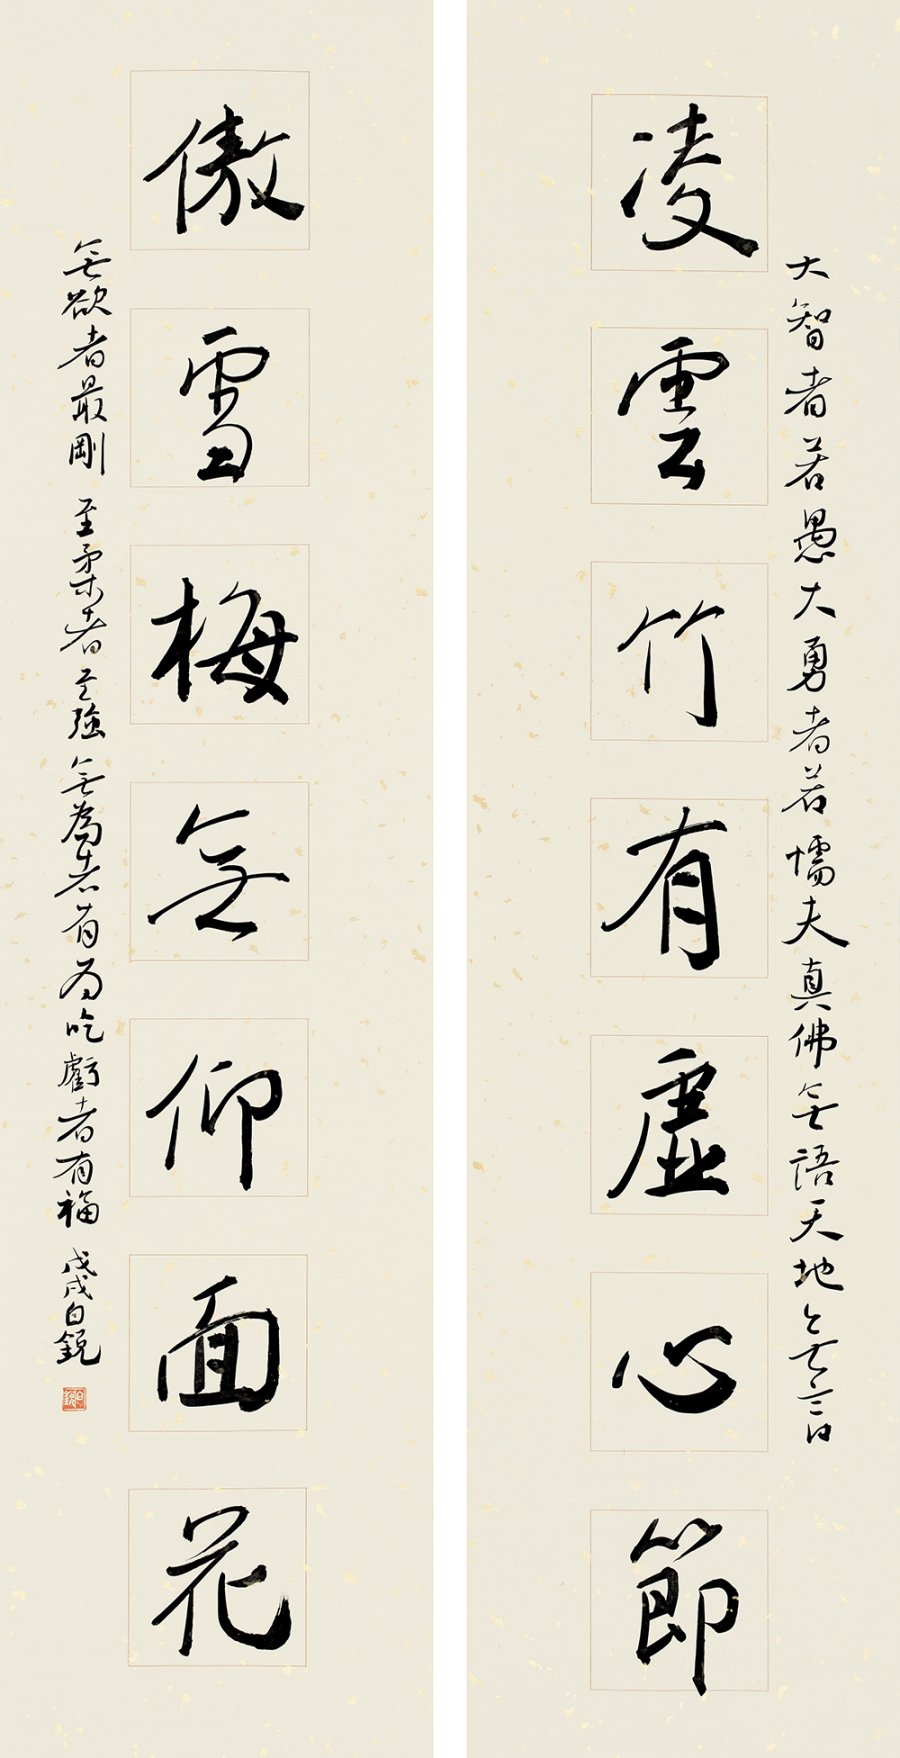 大智者若愚大勇者若懦夫真佛無語天地無言
凌雲竹有虛心節
傲雪梅無仰面花
無欲者最剛至柔者至強無為者有為吃虧者有福戊戌白銳